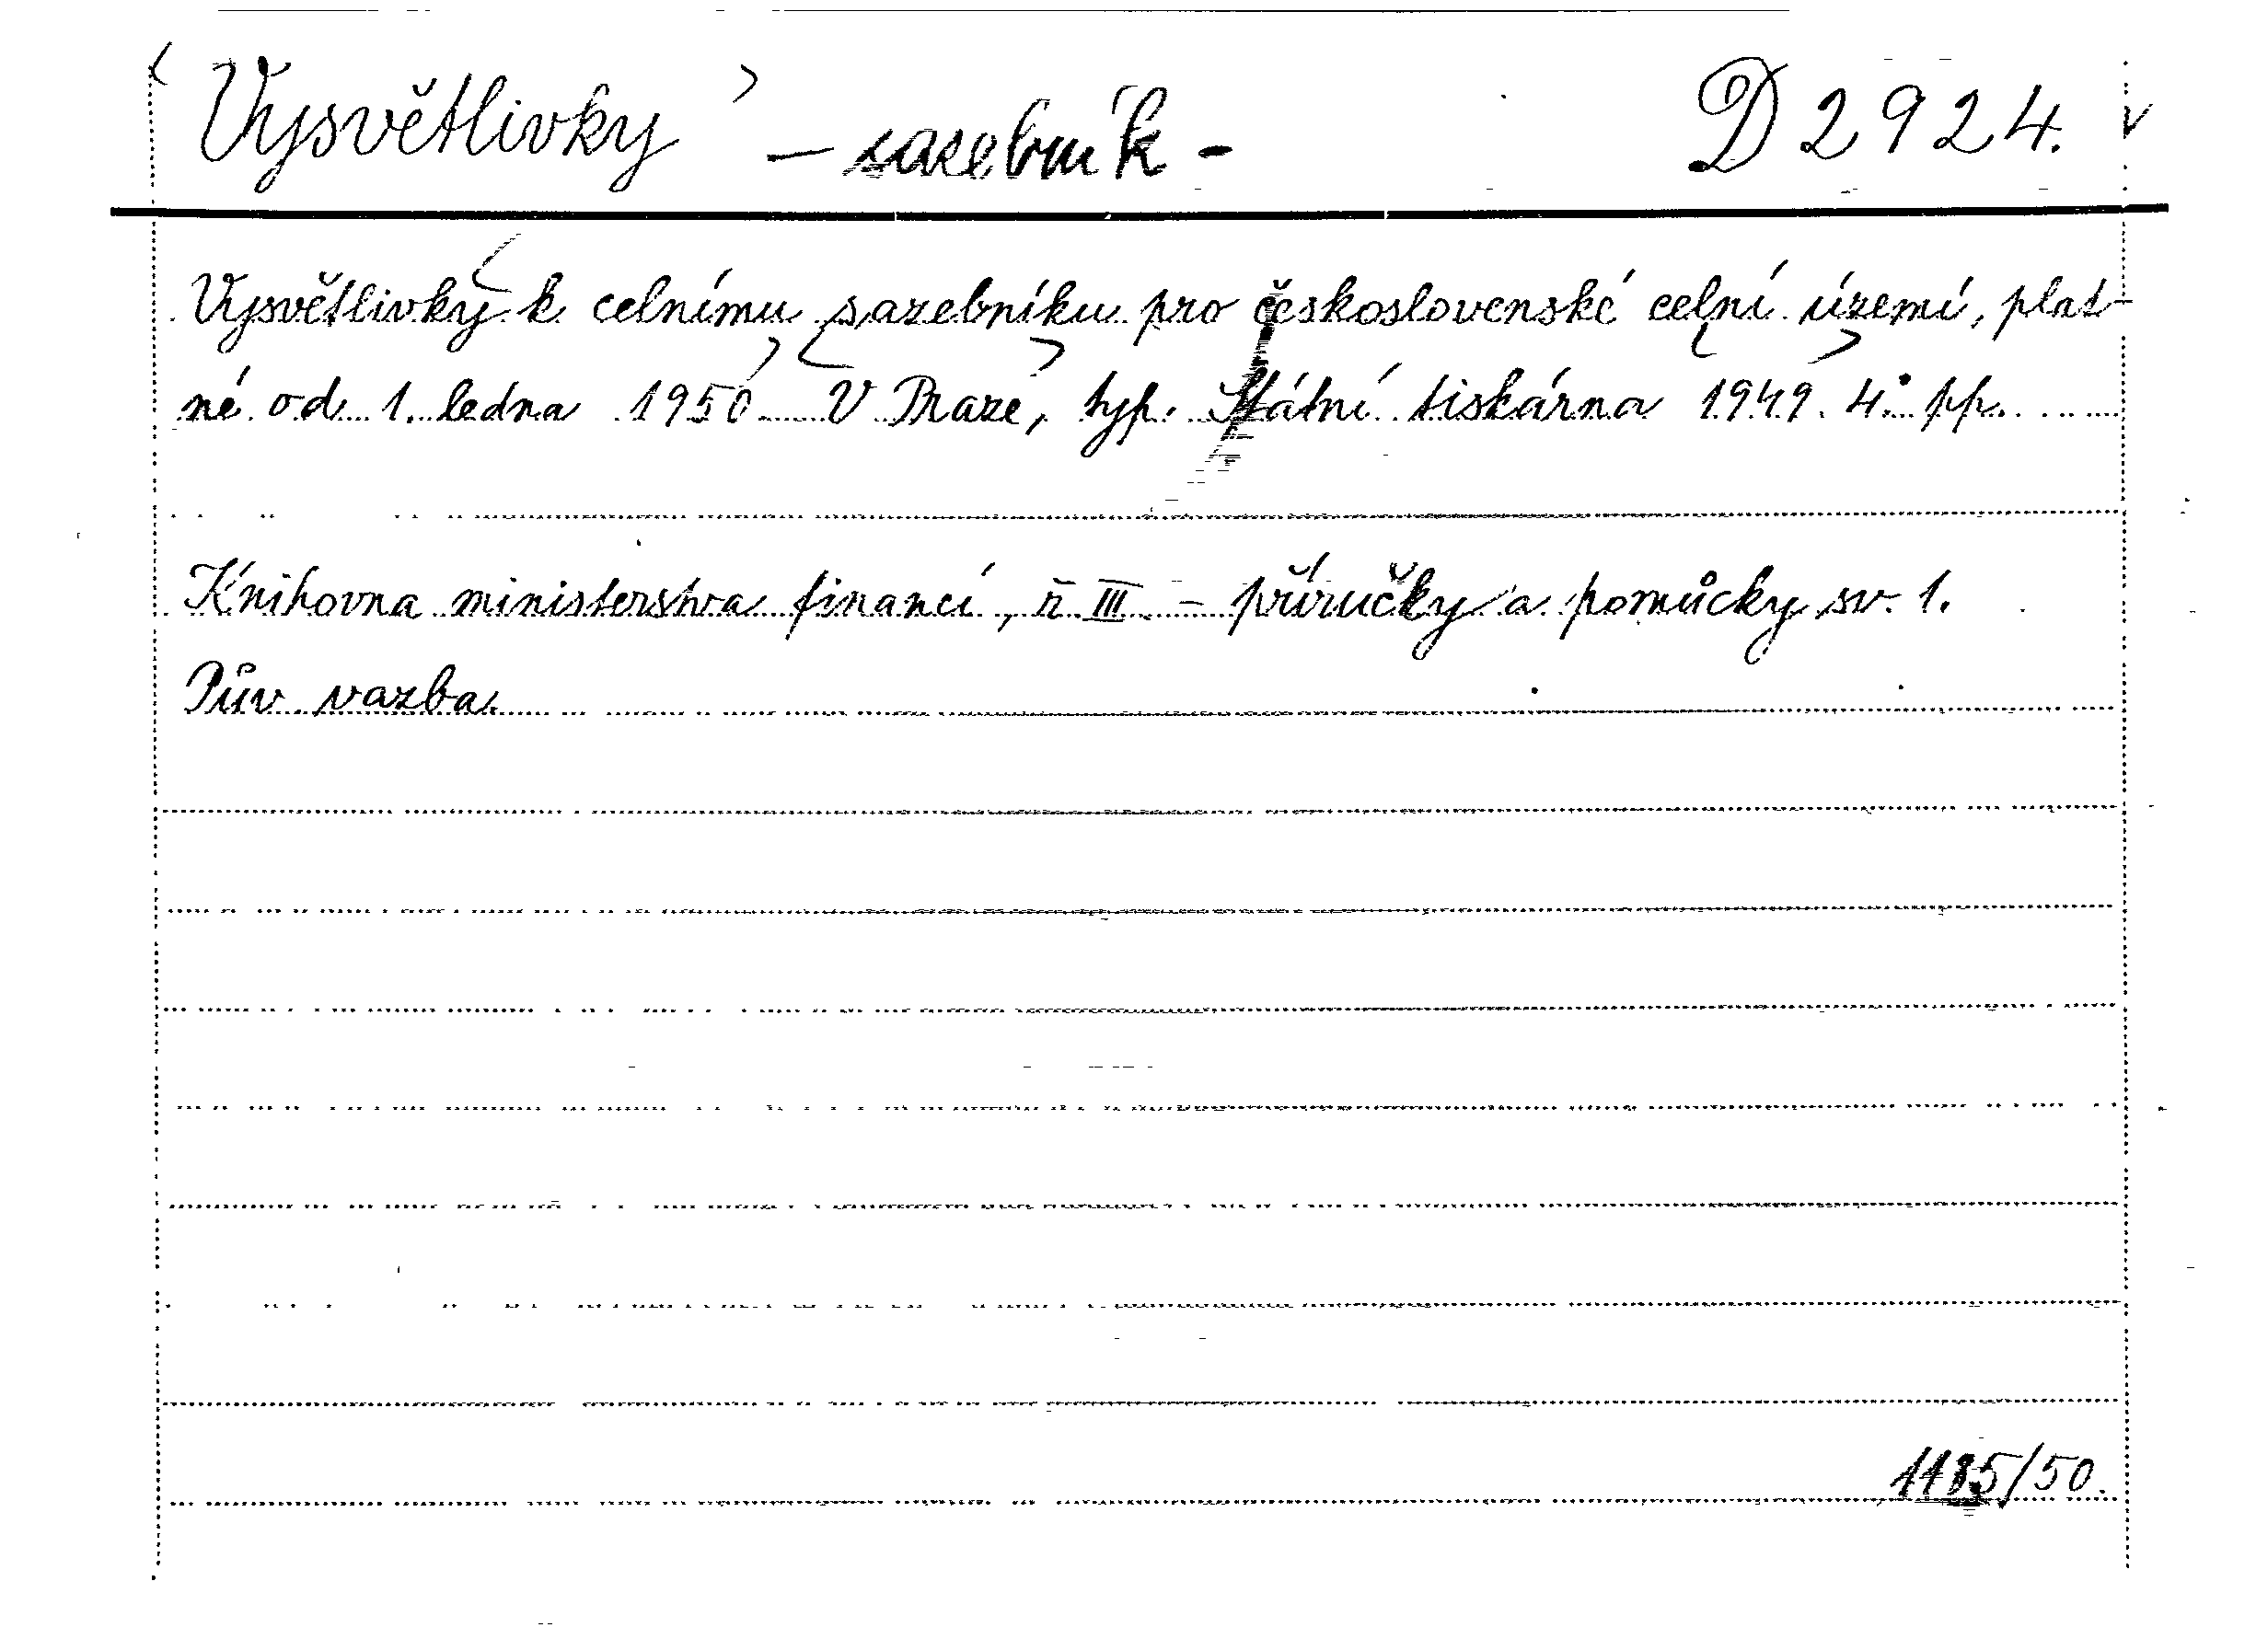 Vysvětlivky – sazebník - D 2924.
Vysvětlivky k celnímu sazebníku pro československé celní území, plat-
né od 1. ledna 1950 V Praze, typ. Státní tiskárna 1949. 4° pp.
Knihovna ministerstva financí, ř. III. – příručky a pomůcky sv. 1.
Pův. vazba.
1185/50.